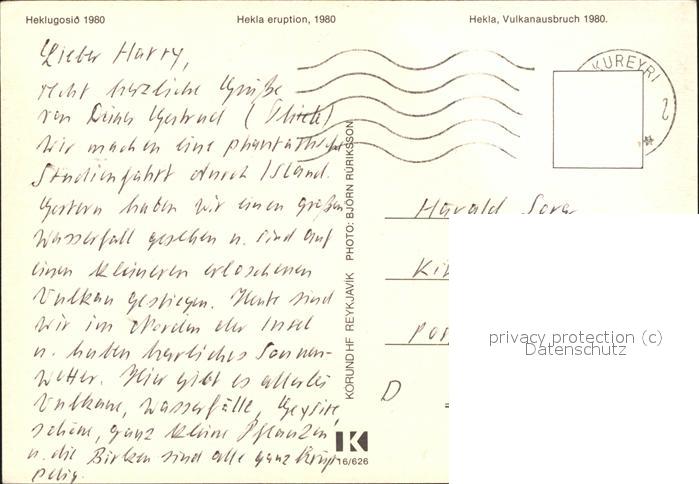 Heklugosið 1980
Hekla eruption, 1980
Hekla, Vulkanausbruch 1980.
Lieber Harry,
recht herzliche Grüße
von Deiner Gertrud
Wir machen eine phantastische
Studienfahrt durch Island.
Gestern haben wir einen großen
Wasserfall gesehen u. sind auf
einen kleineren erloschenen
Vulkan gestiegen. Heute sind
wir im Norden der Insel
u. haben herrliches Sonnen-
wetter. Hier gibt es allerlei
Vulkane, Wasserfälle, Geysire,
schöne, ganz kleine Pflanzen
u. die Birken sind alle ganz krüp-
pelig.
KORUND HF REYKJAVÍK PHOTO: BJÖRN RÚRIKSSON
K
16/626
KUREYRI
2
Harald
D
privacy protection (c)
Datenschutz